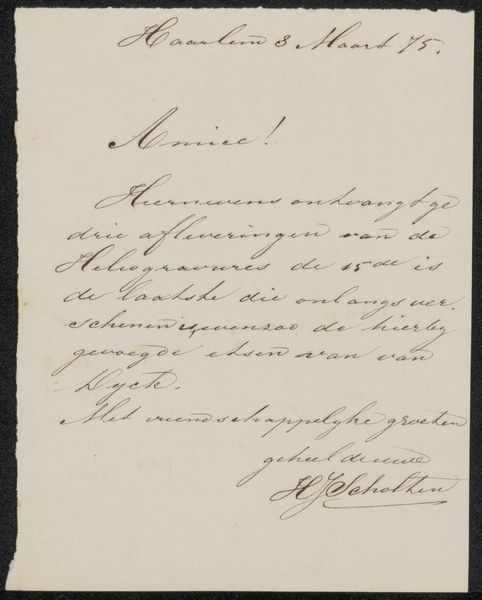 Haarlem 3 Maart 75.
Amice!
Hiernevens ontvangt ge
drie afleveringen van de
Heliogravures de 15de is
de laatste die onlangs ver-
schenen is, evenzoo de hierby
gevoegde etsen van van
Dyck.
Met vriendschappelyke groeten
geheel de uwe
HJScholten